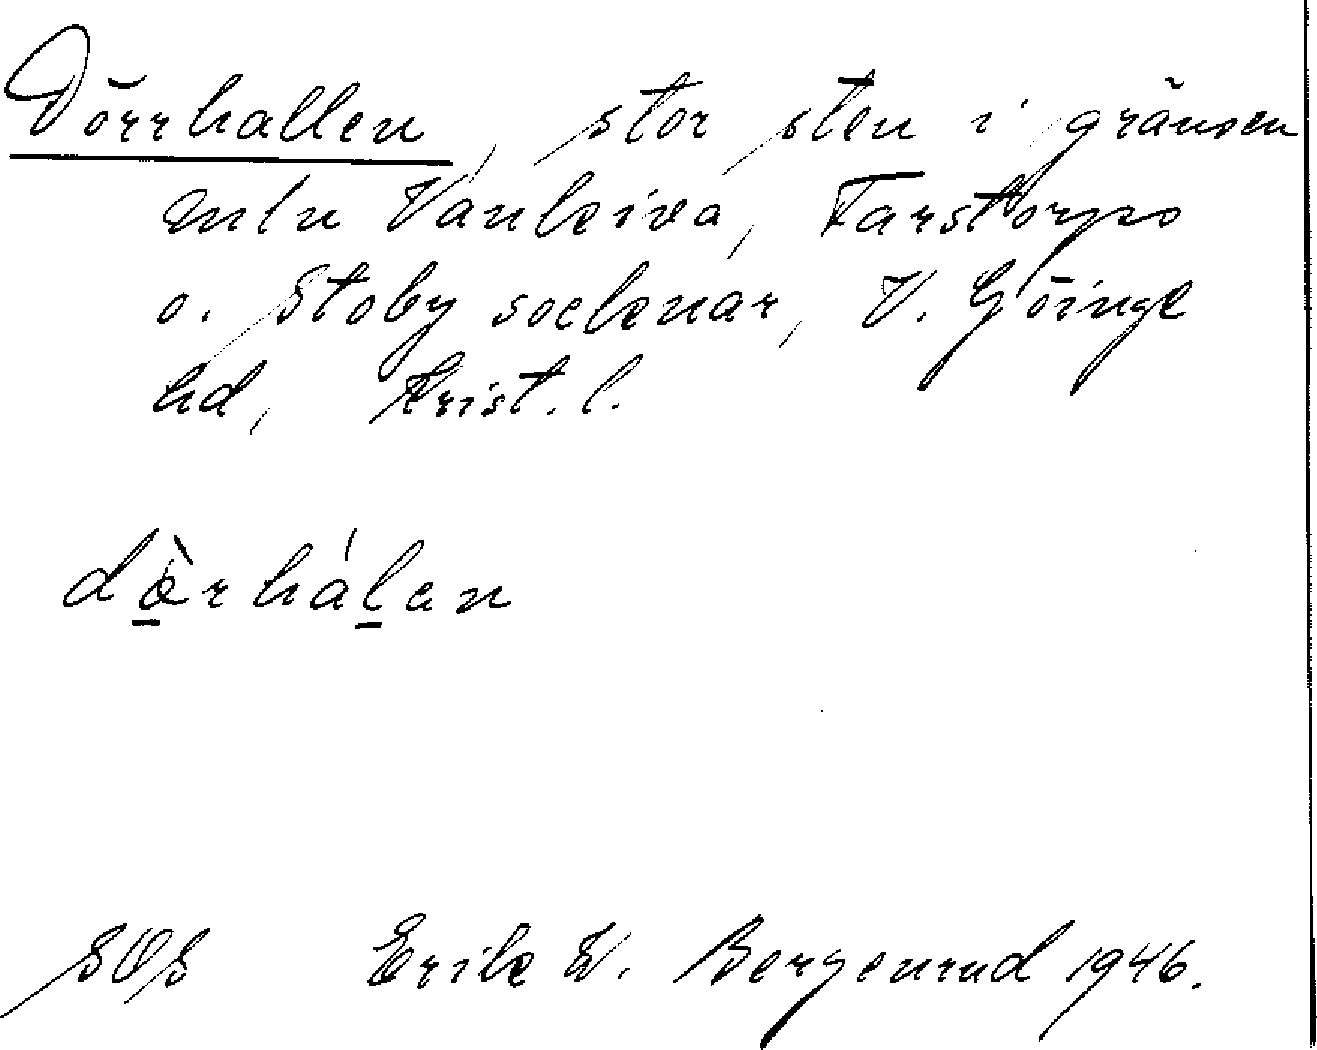 Dörrhallen, stor sten i gränsen
mln Vankiva, Farstorps
o. Stoby socknar, V. Göinge
hd, Krist. l.
dö̀rhálan
SOS Erik W. Bergenrud 1946.